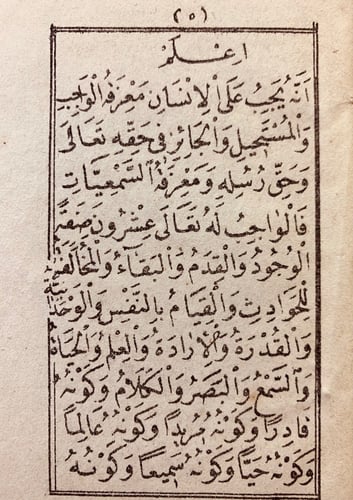 (٥)
اِعْلَمْ
اَنَّهُ يَجِبُ عَلَى الْاِنْسَانِ مَعْرِفَةُ الْوَاجِبِ
وَالْمُسْتَحِيلِ وَالْجَائِزِ فِي حَقِّهِ تَعَالَى
وَحَقِّ رُسُلِهِ وَمَعْرِفَةُ السَّمْعِيَّاتِ
فَالْوَاجِبُ لَهُ تَعَالَى عِشْرُونَ صِفَةً
الْوُجُودُ وَالْقِدَمُ وَالْبَقَاءُ وَالْمُخَالَفَةُ
لِلْحَوَادِثِ وَالْقِيَامُ بِالنَّفْسِ وَالْوَحْدَانِيَّةُ
وَالْقُدْرَةُ وَالْاِرَادَةُ وَالْعِلْمُ وَالْحَيَاةُ
وَالسَّمْعُ وَالْبَصَرُ وَالْكَلَامُ وَكَوْنُهُ
قَادِرًا وَكَوْنُهُ مُرِيدًا وَكَوْنُهُ عَالِمًا
وَكَوْنُهُ حَيًّا وَكَوْنُهُ سَمِيعًا وَكَوْنُهُ